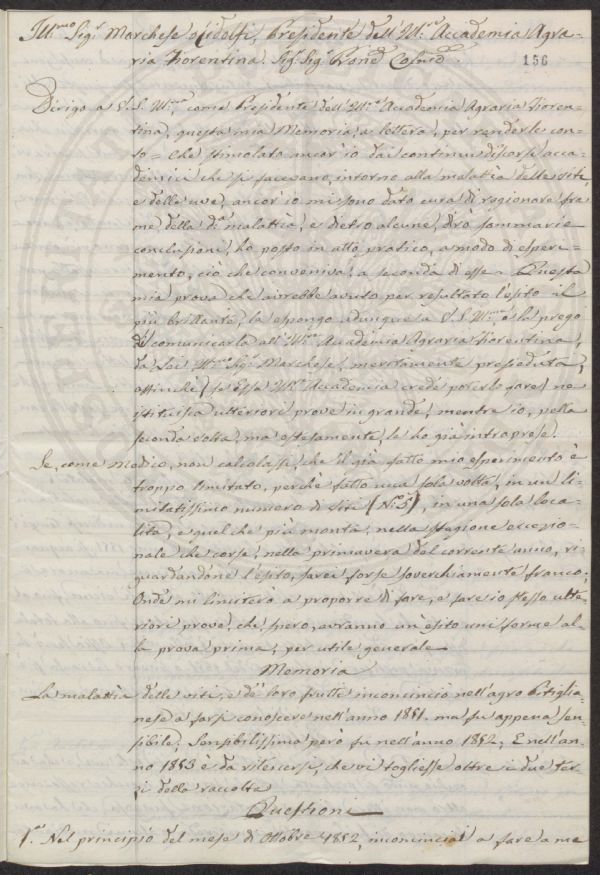 Ill.mo Sig.r Marchese Ridolfi, Presidente dell'Ill.re Accademia Agra-
ria Fiorentina. Sig. Sig.
156
Dirigo a V.S. Ill.ma come Presidente dell'Ill.re Accademia Agraria Fioren-
tina, questa mia Memoria, a lettera, per renderle con-
to = che stimolato ancor io dai continui discorsi acca-
demici che si facevano, intorno alla malattia delle viti,
e delle uve, ancor io mi sono dato cura di ragionare fra
me della d.a malattia, e dietro alcune, dirò sommarie
conclusioni, ho posto in atto pratico, a modo di esperi-
mento, ciò che conveniva, a seconda di esse - Questa
mia prova che avrebbe avuto per resultato l'esito il
più brillante, la espongo adunque a V.S. Ill.ma, e la prego
di comunicarla all'Ill.re Accademia Agraria Fiorentina,
da Lei Ill.mo Sig.r Marchese, meritamente presieduta,
affinchè (se Essa Ill.re Accademia crede poterlo fare) ne
istituisca ulteriori prove in grande, mentre io, nella
seconda volta, ma estesamente, le ho già intraprese.
Se, come Medico, non calcolassi, che il già fatto mio esperimento è
troppo limitato, perchè fatto una sola volta, in un li-
mitatissimo numero di viti (N.o 5), in una sola loca-
lità, e quel che più monta, nella stagione eccezio-
nale che corse, nella primavera del corrente anno, ri-
guardandone l'esito, sarei forse soverchiamente franco;
Onde mi limiterò a proporre di fare, e fare io stesso ulte-
riori prove, che, spero, avranno un esito uniforme al-
la prova prima, per utile generale
Memoria
La malattia delle viti, e de' loro frutti incominciò nell'agro Pitiglia-
nese a farsi conoscere nell'anno 1851. ma fu appena sen-
sibile; Sensibilissima però fu nell'anno 1852, E nell'an-
no 1853 è da ritenersi, che vi togliesse oltre i due ter-
zi della raccolta
Questioni
1.a Nel principio del mese di Ottobre 1852, incominciai a fare a me